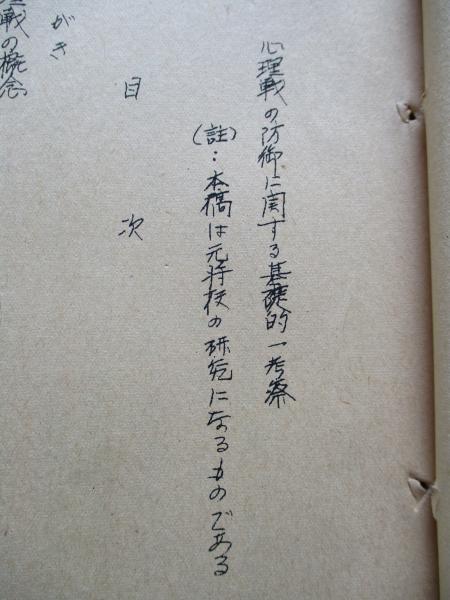 心理戦の防御に関する基礎的一考察
(註):本稿は元将校の研究になるものである
目次
がき
理戦の概念